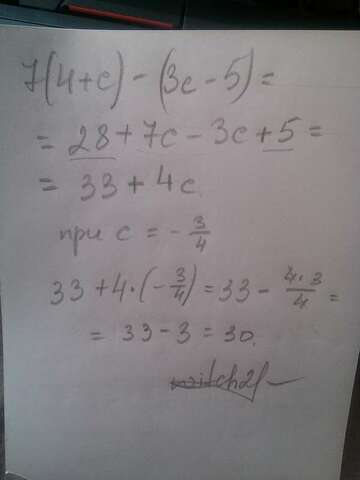 7(4+c) - (3c - 5) =
= 28 + 7c - 3c + 5 =
= 33 + 4c
при c = - 3/4
33 + 4·(- 3/4) = 33 - 4·3/4 =
= 33 - 3 = 30.